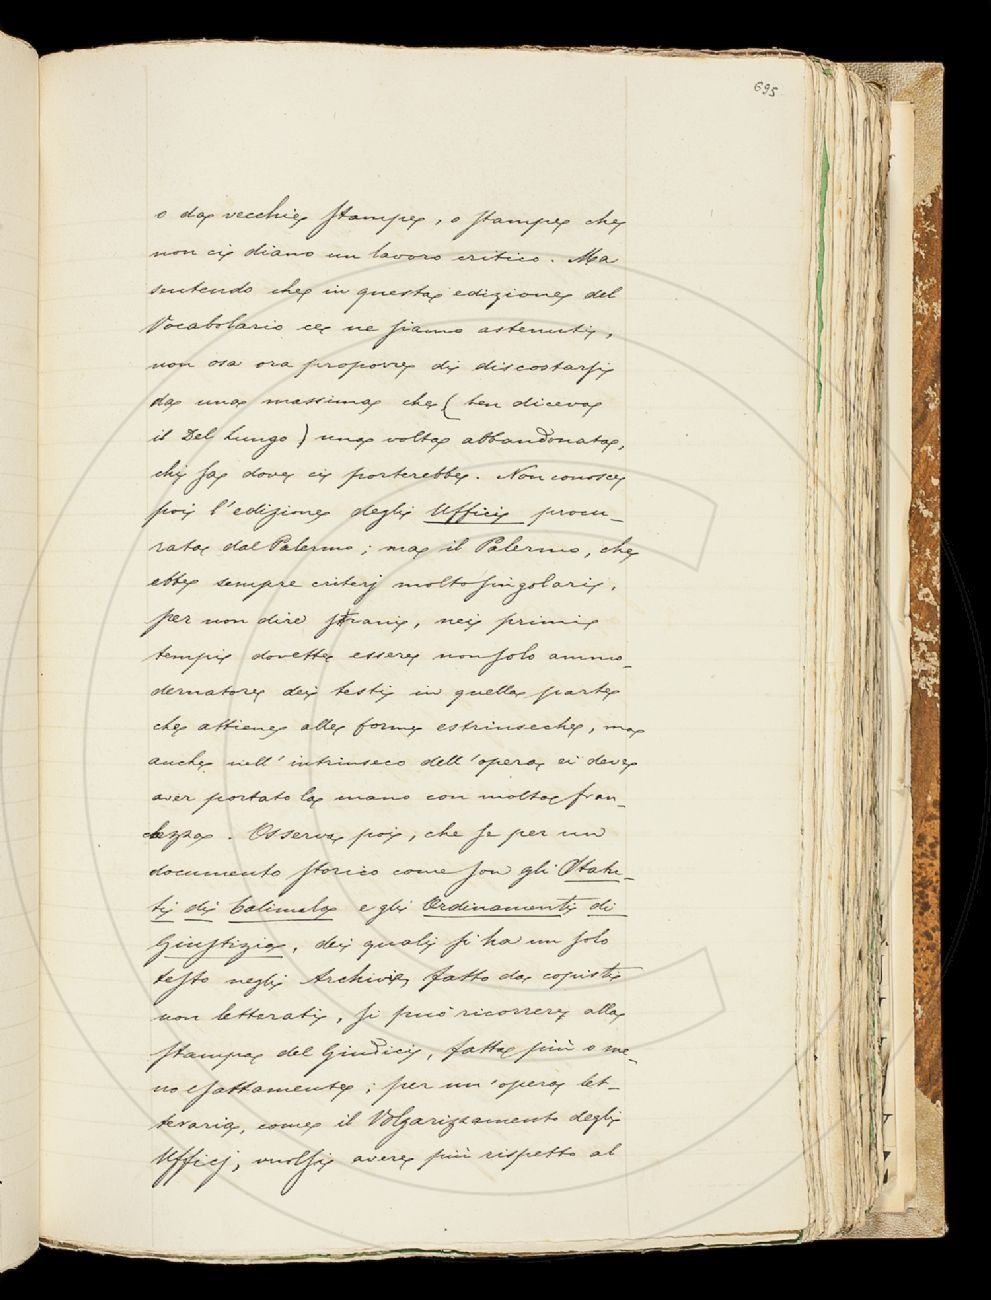 695
o da vecchie stampe, o stampe che
non ci diano un lavoro critico. Ma
sentendo che in questa edizione del
Vocabolario ce ne siamo astenuti,
non osa ora proporre di discostarsi
da una massima che (ben diceva
il Del Lungo) una volta abbandonata,
chi sa dove ci porterebbe. Non conosce
poi l'edizione degli Ufficj procu-
rata dal Palermo; ma il Palermo, che
ebbe sempre criterj molto singolari,
per non dire strani, nei primi
tempi dovette essere non solo ammo-
dernatore dei testi in quella parte
che attiene alle forme estrinseche, ma
anche nell'intrinseco dell'opera ei deve
aver portato la mano con molta fran-
chezza. Osserva poi, che se per un
documento storico come son gli Statu-
ti di Calimala e gli Ordinamenti di
Giustizia, dei quali si ha un solo
testo negli Archivi, fatto da copisti
non letterati, si può ricorrere alla
stampa del Giudici, fatta più o me-
no esattamente; per un'opera let-
teraria, come il Volgarizzamento degli
Ufficj, vuolsi avere più rispetto al